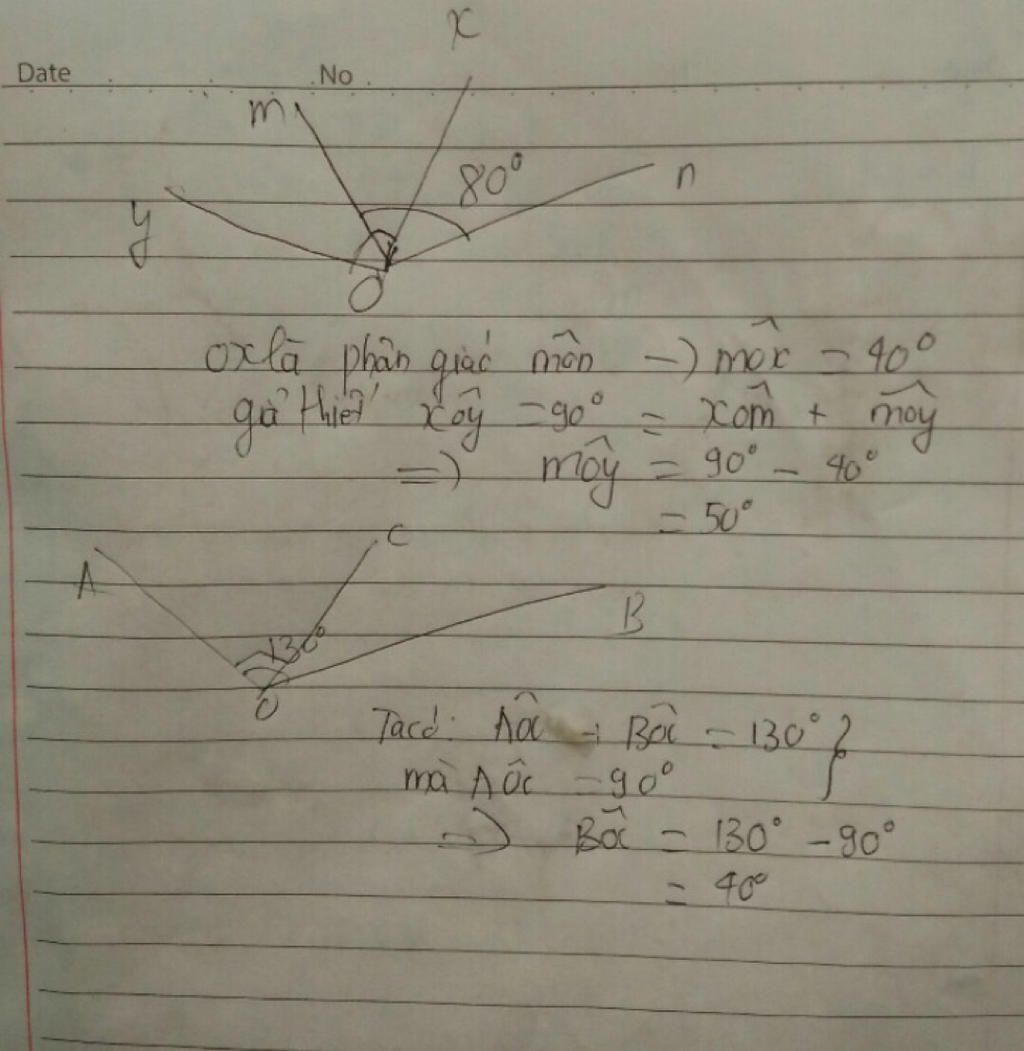 Date No
x
m
80°
n
y
O
ox là phân giác môn → mox̂ = 40°
giả thiết xôy = 90° = xom̂ + moŷ
=> môy = 90° - 40°
= 50°
C
A
130°
B
O
Ta có: AOĈ + BOĈ = 130° }
mà AÔC = 90°
=> BOĈ = 130° - 90°
= 40°